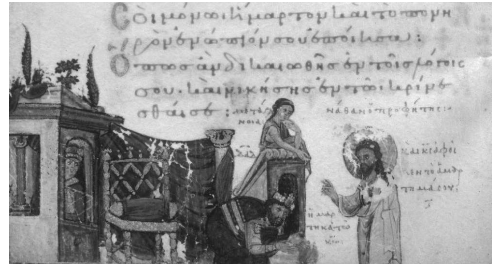 Σοὶ μόνω ἥμαρτον καὶ τὸ πονη
ρὸν ἐνώπιόν σου ἐποίησα:
Ὅπως ἂν δικαιωθῆς ἐν τοῖς λόγοις
σου. καὶ νικήσης ἐν τῶ κρίνε
σθαί σε:
ναθαν ὁ προφήτης